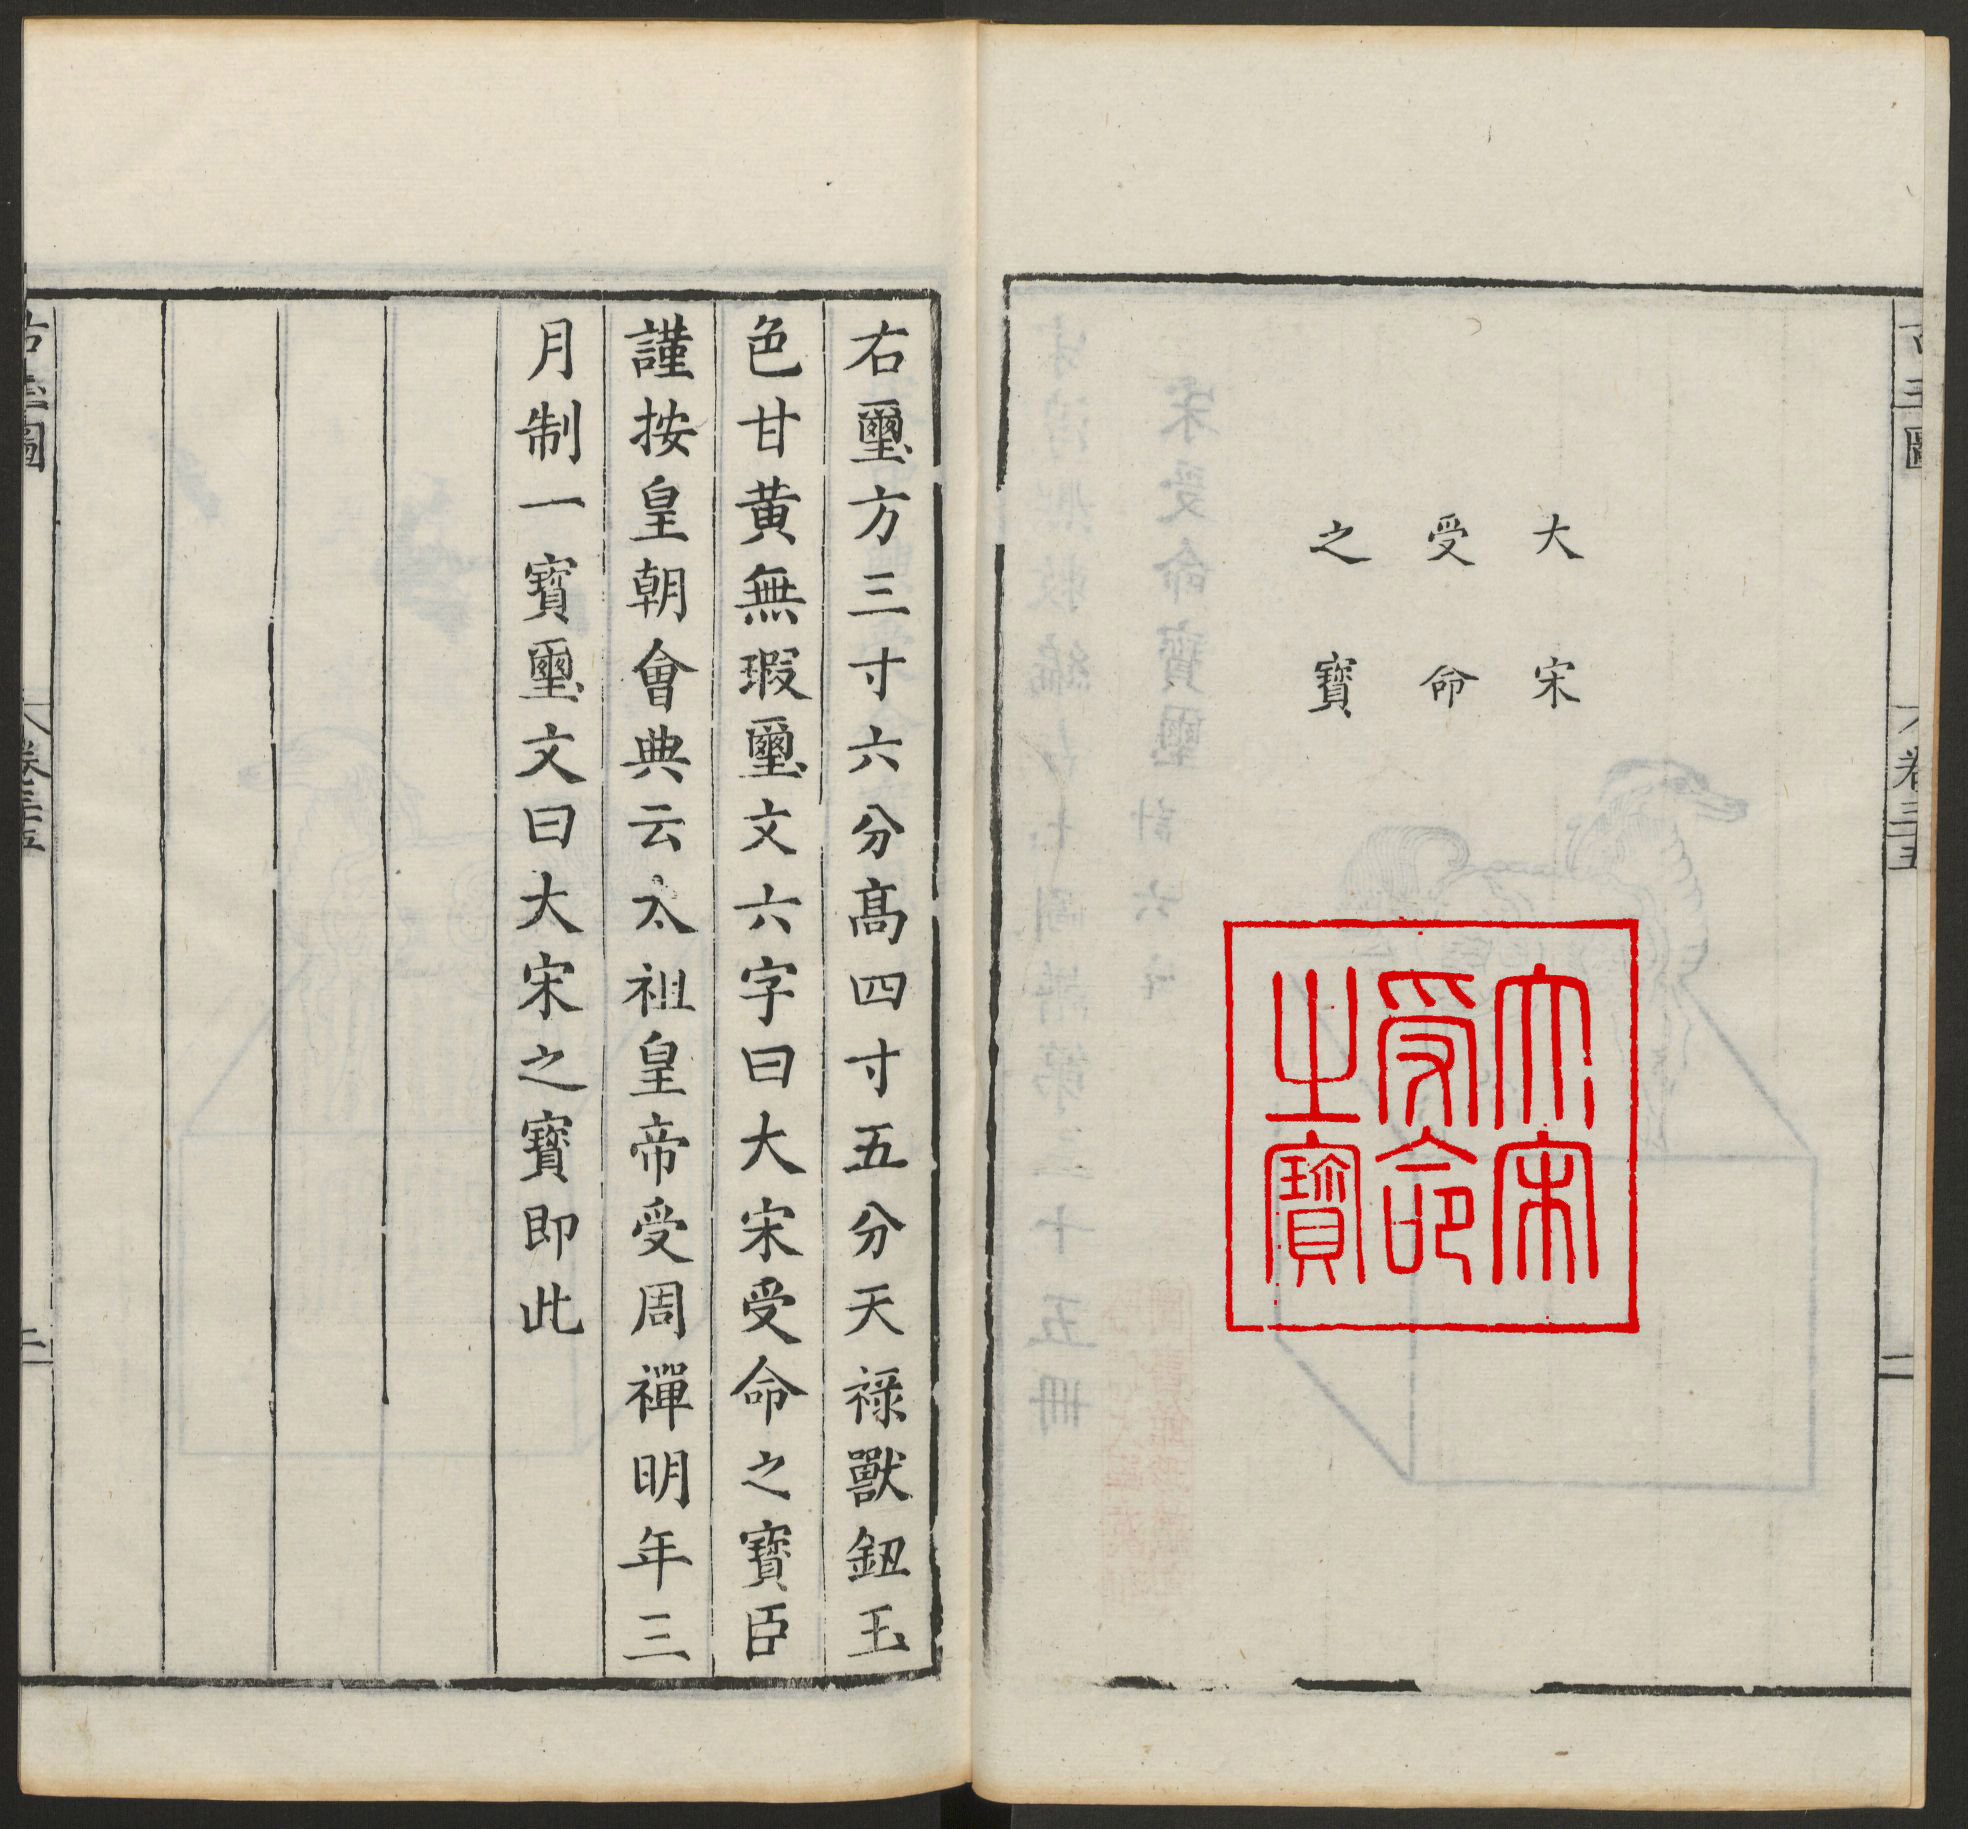 大宋
受命
之寶
大宋
受命
之寶
右璽方三寸六分高四寸五分天祿獸鈕玉
色甘黃無瑕璽文六字曰大宋受命之寶臣
謹按皇朝會典云太祖皇帝受周禪明年三
月制一寶璽文曰大宋之寶即此
卷三五
二